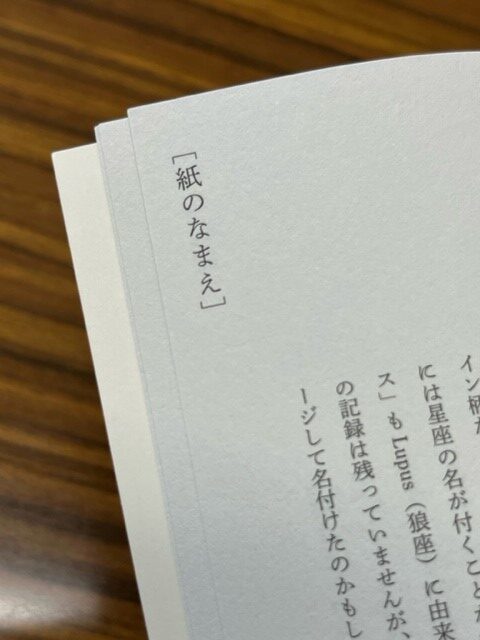 [紙のなまえ]
イン柄が
には星座の名が付くことが
ス」も Lupus（狼座）に由来
の記録は残っていませんが、
ージして名付けたのかもし